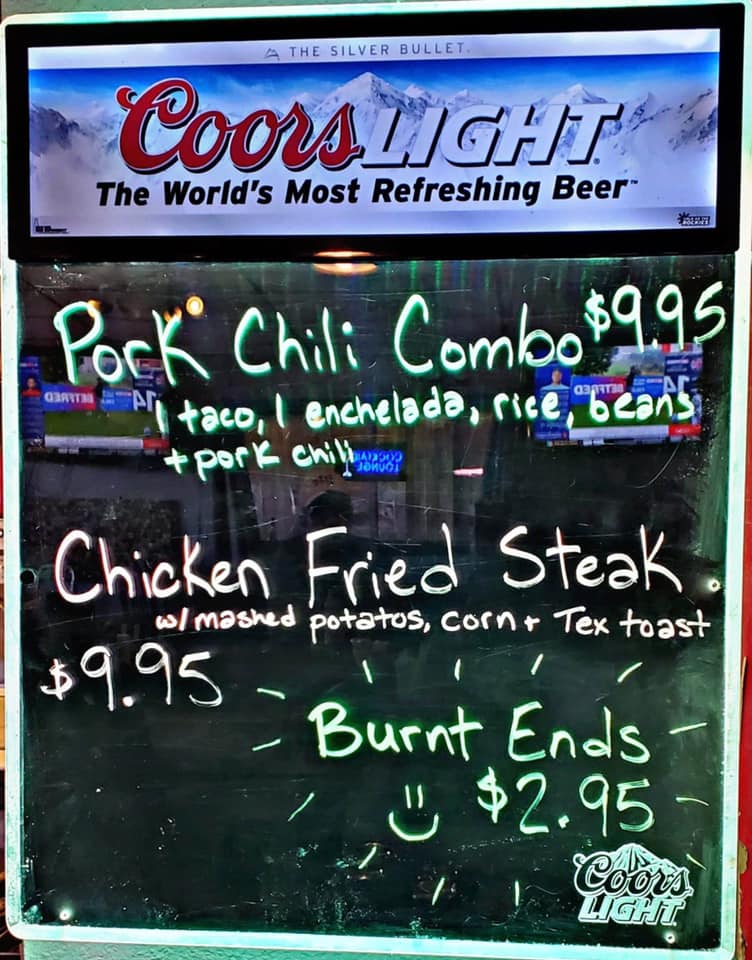 THE SILVER BULLET.
Coors LIGHT
The World's Most Refreshing Beer™
Pork Chili Combo $9.95
1 taco, 1 enchelada, rice, beans
+ pork chili
Chicken Fried Steak
w/ mashed potatos, corn + Tex toast
$9.95
Burnt Ends
$2.95
Coors
LIGHT